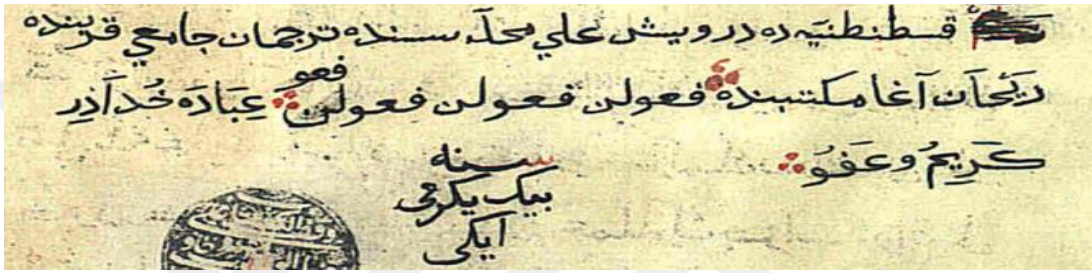 قسطنطنيه ده درويش علي محله سنده ترجمان جامعي قربنده
ريحان آغا مكتبنده فعولن فعولن فعولن فعولن عباده خدا در
فعو
كريم و عفو
سنه
بيك يكرمي
ايكى